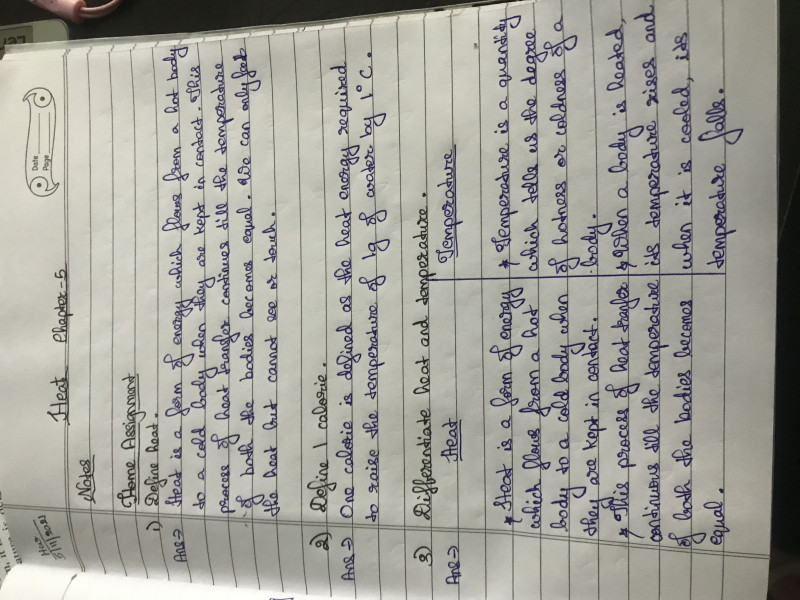 Date
Page
Heat Chapter-5
Notes
Home Assignment
1) Define heat.
Ans-> Heat is a form of energy which flows from a hot body
to a cold body when they are kept in contact. This
process of heat transfer continues till the temperature
of both the bodies becomes equal. We can only feel
the heat but cannot see or touch.
2) Define 1 calorie.
Ans-> One calorie is defined as the heat energy required
to raise the temperature of 1g of water by 1°C.
3) Differentiate heat and temperature.
Ans-> Heat
* Heat is a form of energy
which flows from a hot
body to a cold body when
they are kept in contact.
* This process of heat transfer
continuous till the temperature
of both the bodies becomes
equal.
Temperature
* Temperature is a quantity
which tells us the degree
of hotness or coldness of a
body.
* When a body is heated,
its temperature rises and
when it is cooled, its
temperature falls.